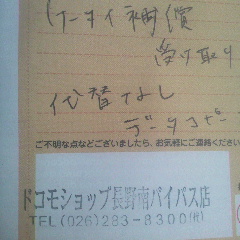 ケータイ補償
受け取り
代替なし
データコピー
ご不明な点などございましたら、お気軽にご連絡ください
ドコモショップ長野南バイパス店
TEL(026)283-8300(代)